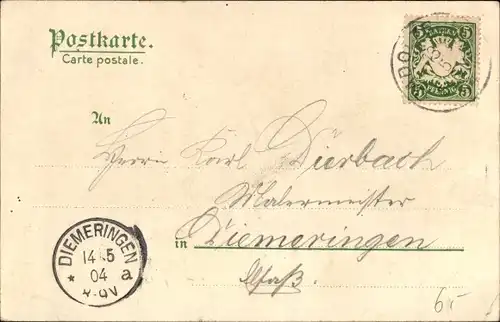 Postkarte.
Carte postale.
BAYERN
5 5
5 5
PFENNIG
An
Herrn Karl Dierbach
Malermeister
in Diemeringen
Elsaß.
DIEMERINGEN
14 5
04 a
6,-